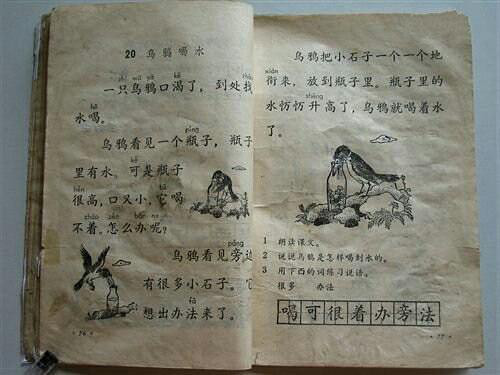 20 乌鸦喝水
zhī wū yā kě
一只乌鸦口渴了，到处找
hē
水喝。
píng
乌鸦看见一个瓶子，瓶子
里有水。可是瓶子
hěn
很高，口又小，它喝
zháo zěn bàn ne
不着，怎么办呢？
páng
乌鸦看见旁边
有很多小石子。它
fǎ
想出办法来了。
· 76 ·
乌鸦把小石子一个一个地
xián
衔来，放到瓶子里。瓶子里的
shēng
水升高了，乌鸦就喝着水
了。
1 朗读课文。
2 说说乌鸦是怎样喝到水的。
3 用下的词练习说话。
很多 办法
喝可很着办旁法
· 77 ·